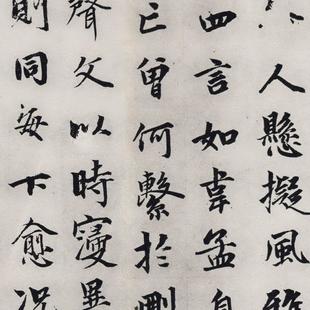 人懸擬風雅
四言如韋孟自
已曾何繫於刪
聲文以時寖異
則同每下愈况